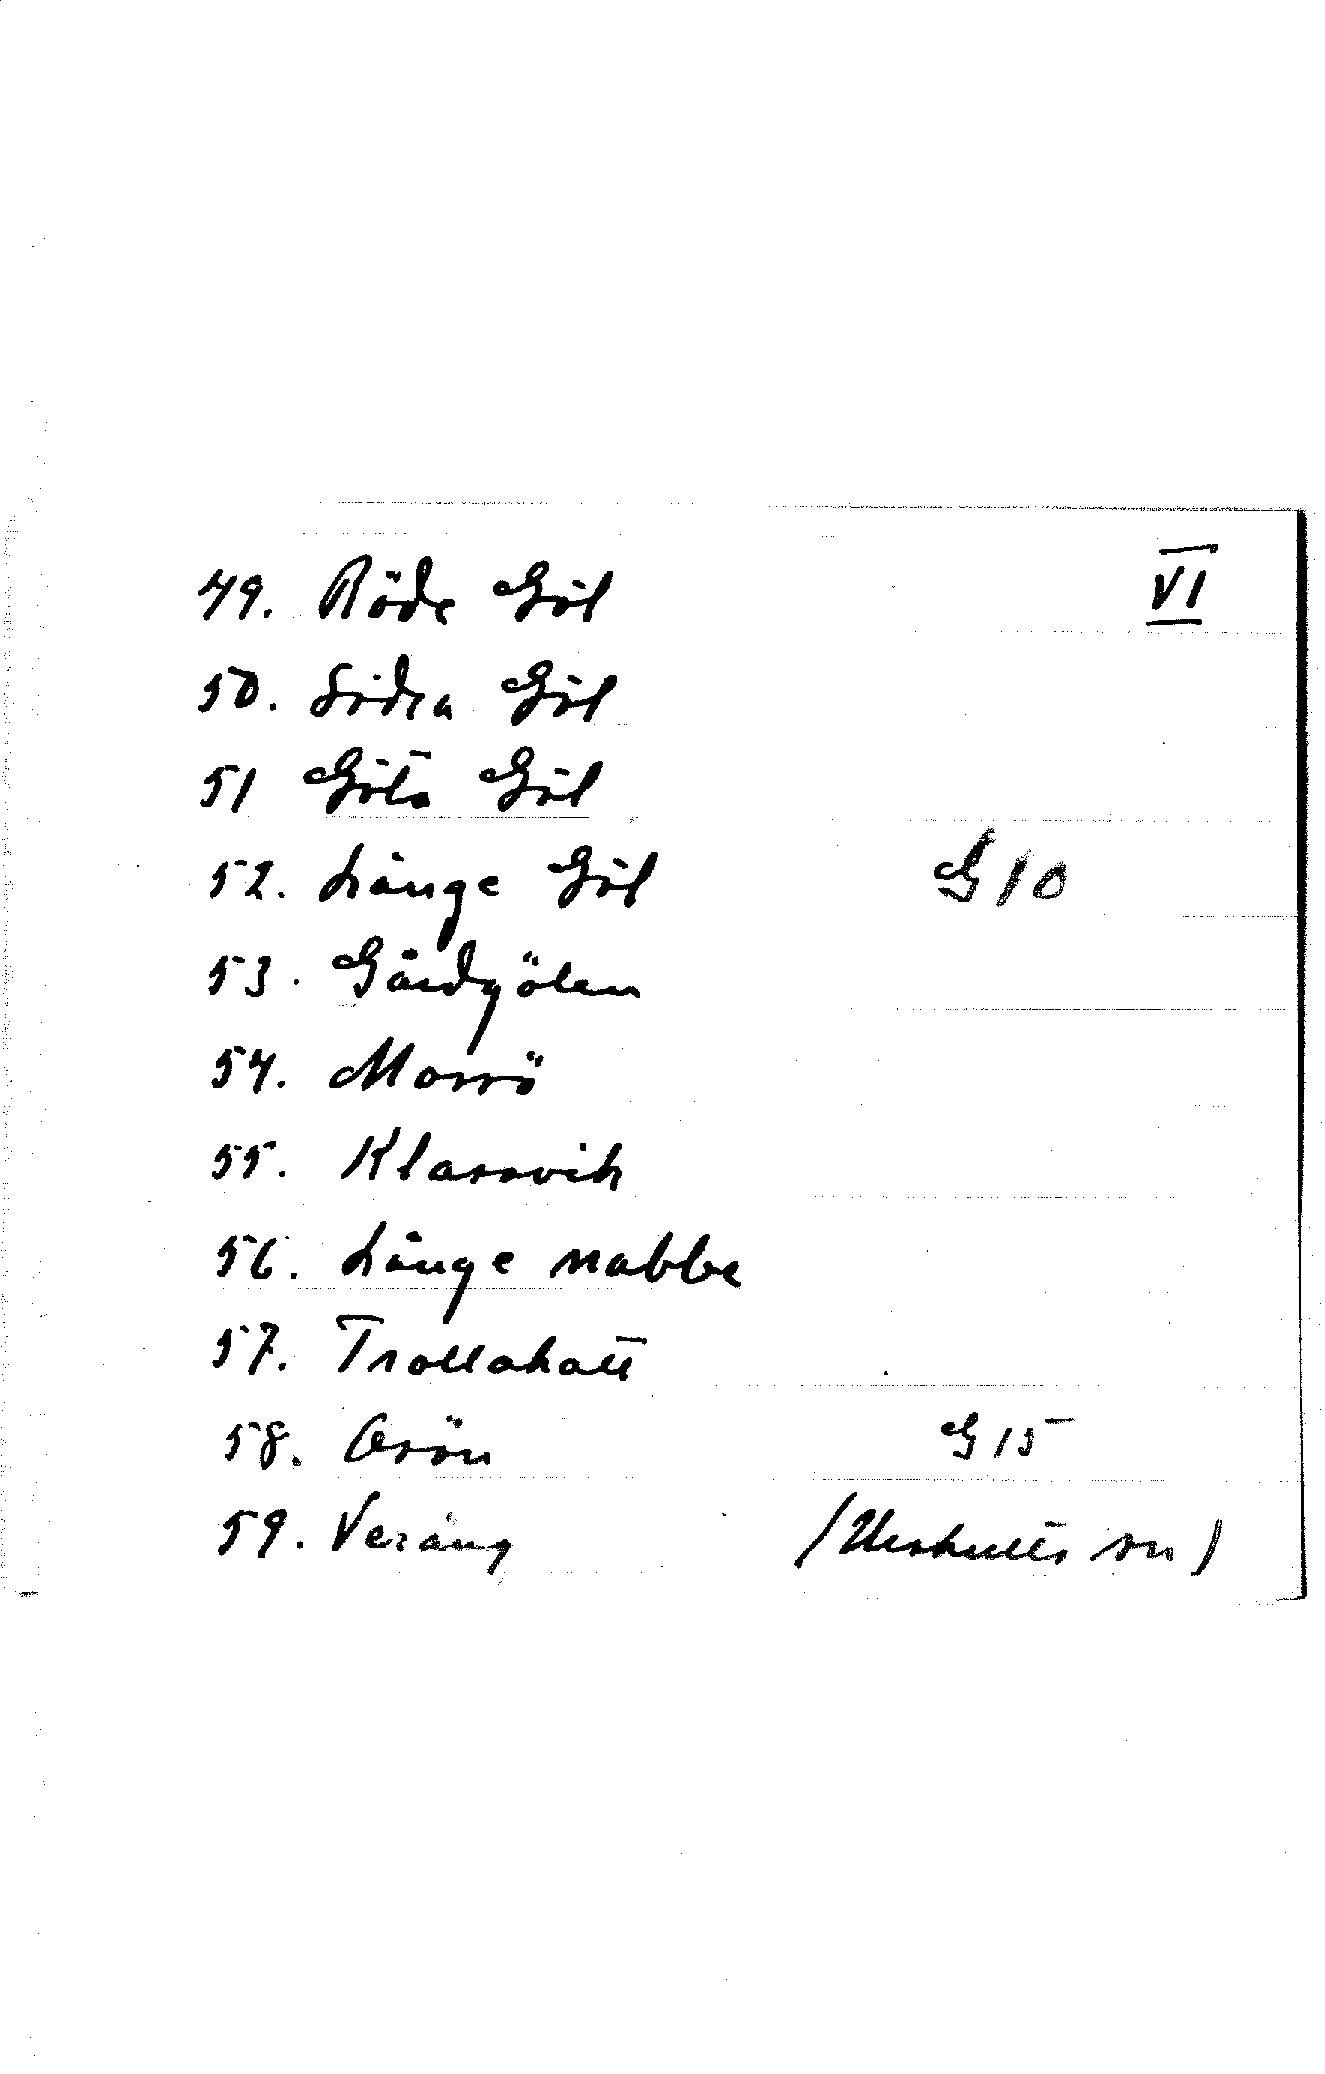 VI
49. Röde Göl
50. Södra Göl
51 Göta Göl
52. Långe Göl G 10
53. Gårdgölen
54. Morrö
55. Klasavik
56. Långe nabbe
57. Trollahatt
58. Orön G 15
59. Veräng (Urshults sn)